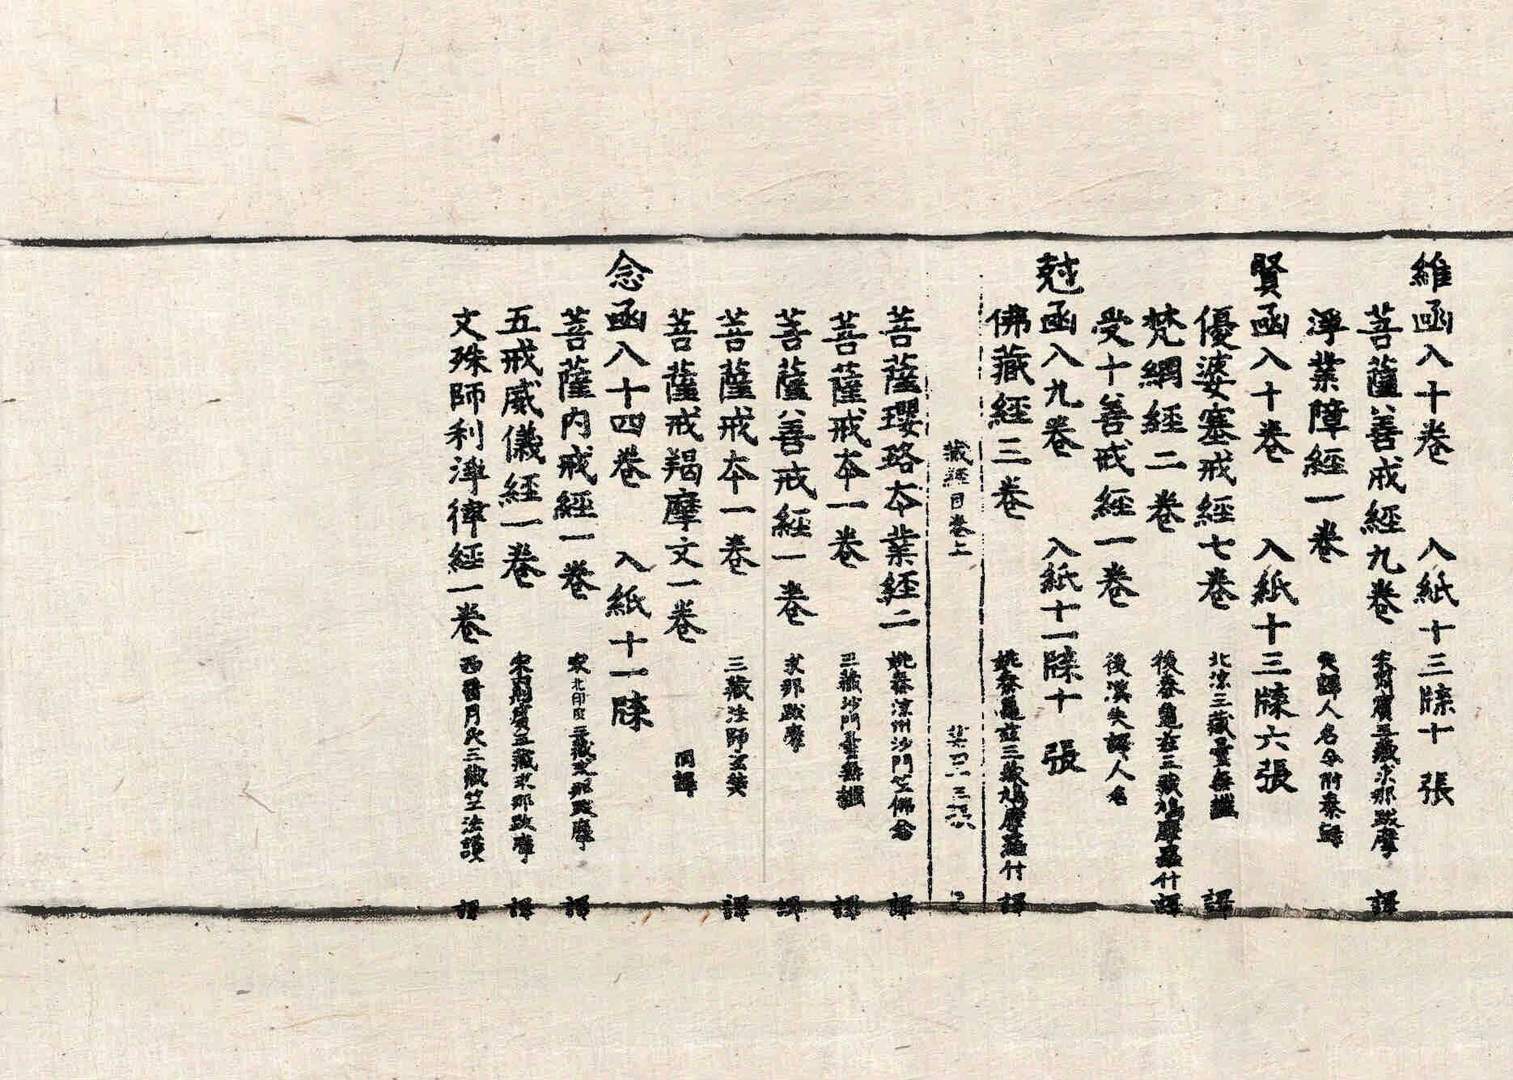 維函入十卷 入紙十三牒十張
菩薩善戒經九卷 宋罽賓三藏求那跋摩 譯
淨業障經一卷 失譯人名今附秦録
賢函入十卷 入紙十三牒六張
優婆塞戒經七卷 北涼三藏曇無讖 譯
梵網經二卷 後秦龜茲三藏鳩摩羅什 譯
受十善戒經一卷 後漢失譯人名
尅函入九卷 入紙十一牒十張
佛藏經三卷 姚秦龜茲三藏鳩摩羅什 譯
藏經目卷上 三張
菩薩瓔珞本業經二 姚秦涼州沙門竺佛念 譯
菩薩戒本一卷 三藏沙門曇無讖 譯
菩薩善戒經一卷 求那跋摩 譯
菩薩戒本一卷 三藏法師玄奘 譯
菩薩戒羯摩文一卷 同譯
念函入十四卷 入紙十一牒
菩薩内戒經一卷 宋北印度三藏求那跋摩 譯
五戒威儀經一卷 宋罽賓三藏求那跋摩 譯
文殊師利淨律經一卷 西晉月氏三藏竺法護 譯